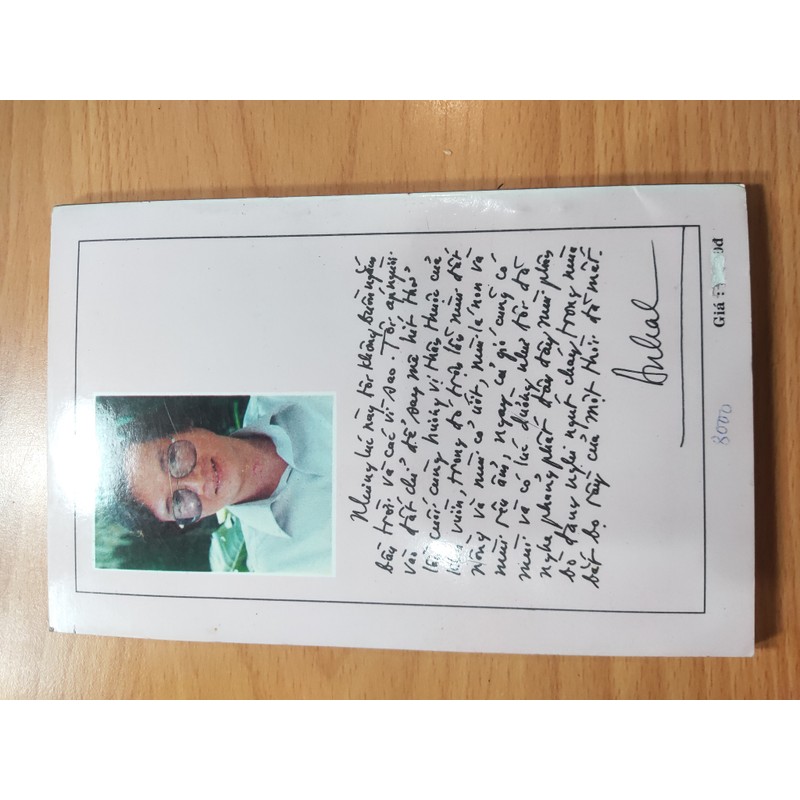 Những lúc này tôi không buồn ngắm
bầu trời và các vì sao. Tôi áp người
vào đất chỉ để say mê hít thở
lần cuối cùng hương vị thân thuộc của
khu vườn, trong đó trộn lẫn mùi đất
nồng và mùi cỏ ướt, mùi lá non và
mùi rêu ẩm, ngay cả gió cũng có
mùi và có lúc dường như tôi đã
nghe phảng phất đâu đây mùi phân
bò đang nghi ngút cháy trong mùa
bắt bọ rầy của một thời đã mất.
Anhat
Giá
8000